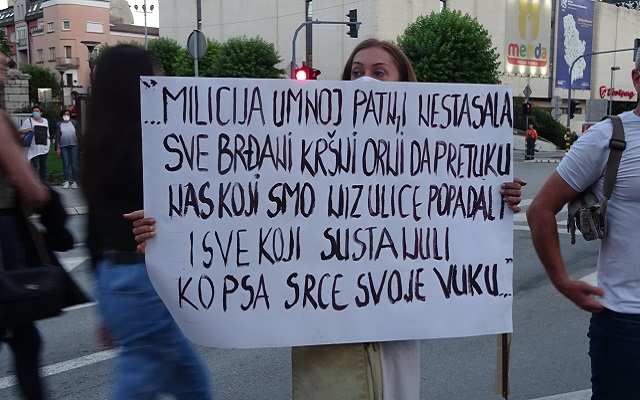 "...MILICIJA UMNOJ PATNJI NESTASALA
SVE BRĐANI KRŠNI ORNI DA PRETUKU
NAS KOJI SMO NIZ ULICE POPADALI
I SVE KOJI SUSTANULI
KO PSA SRCE SVOJE VUKU..."